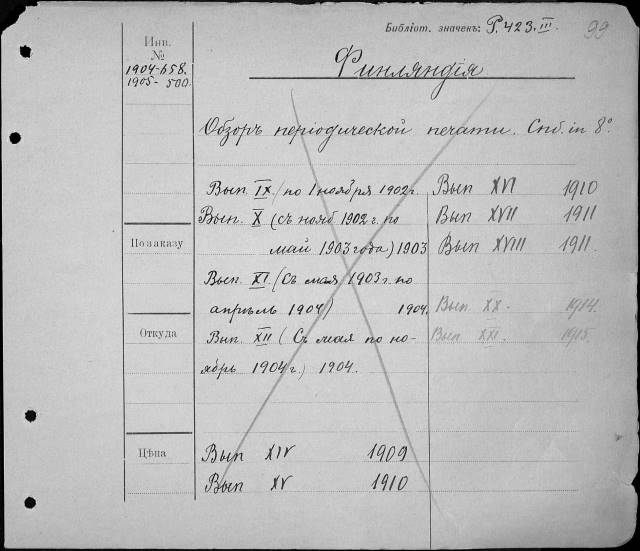 Библіот. значенъ: Р. 423. III.
99
Инв.
№
1904-658.
1905- 500.
Финляндія
Обзоръ періодической печати. Спб. in 8°
Вып. IX (по 1 ноября 1902 г.
Вып. X (съ нояб 1902 г. по
май 1903 года) 1903
Вып. XI (Съ мая 1903 г. по
апрѣль 1904) 1904.
Вып. XII (Съ мая по но-
ябрь 1904 г.) 1904.
Вып XIV 1909
Вып XV 1910
Вып XVI 1910
Вып XVII 1911
Вып XVIII 1911.
Вып XX. 1914.
Вып XXI. 1915.
По заказу
Откуда
Цѣна